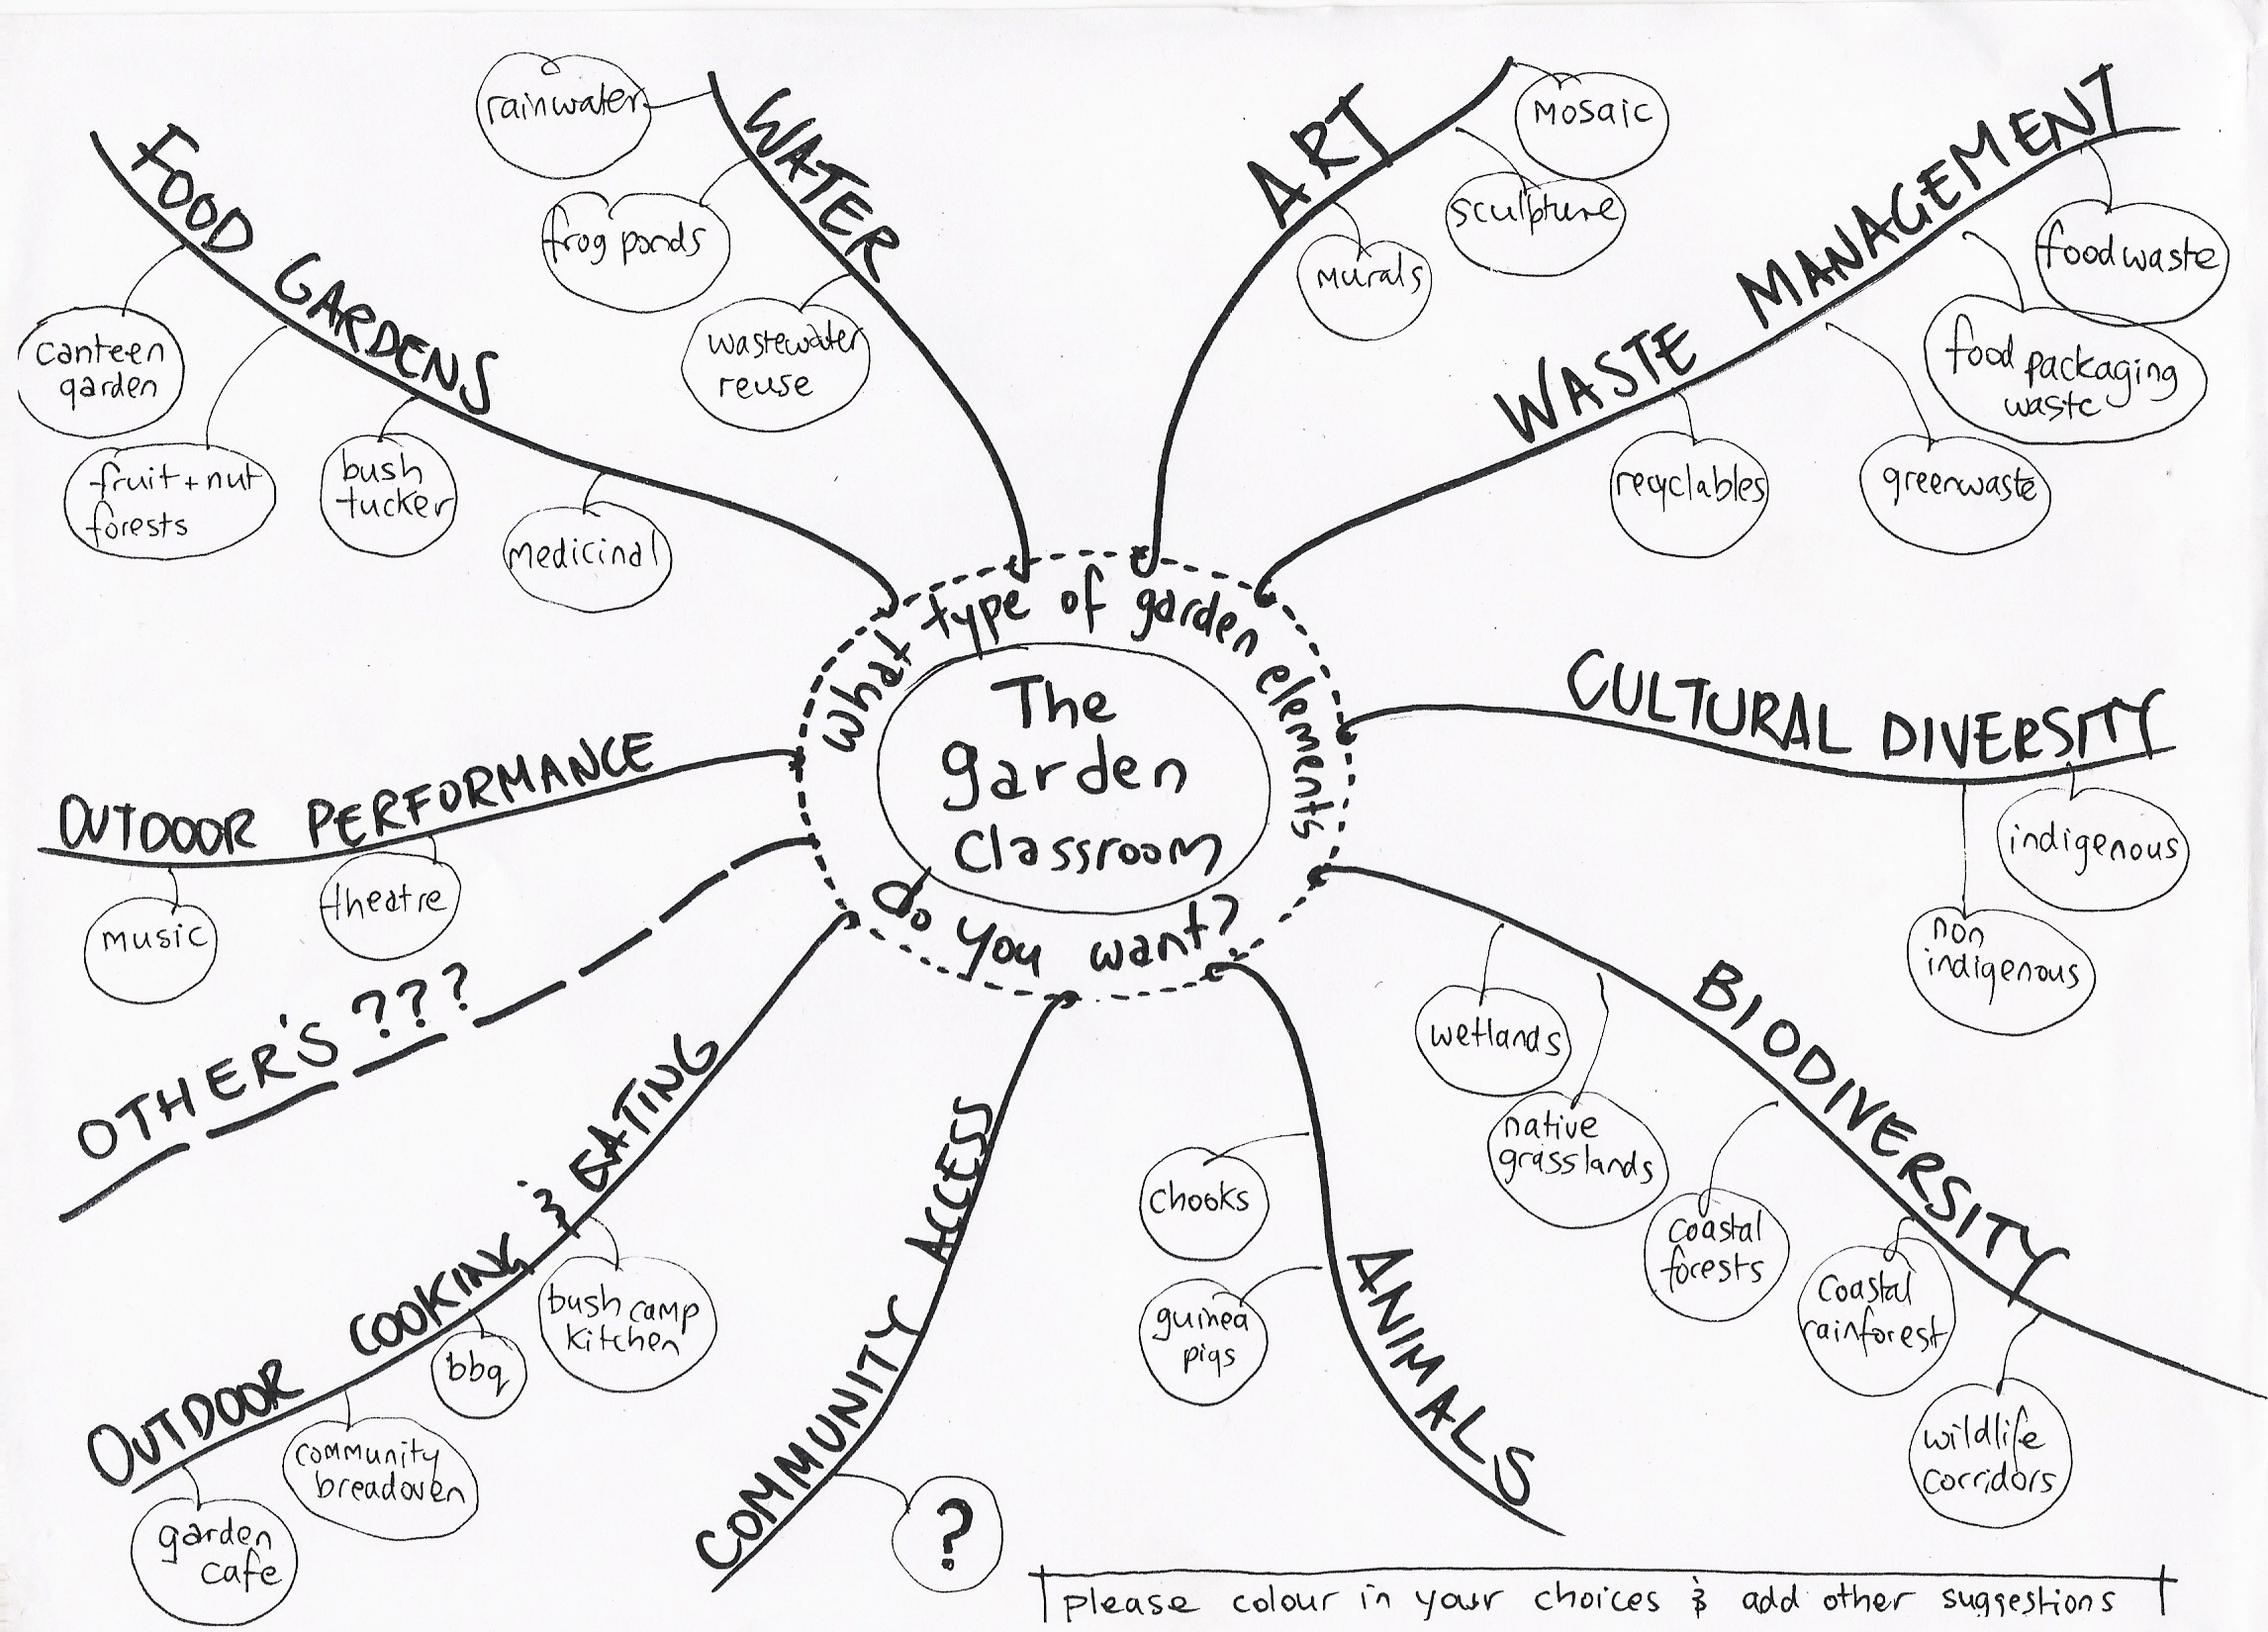 The
garden
classroom
What type of garden elements
do you want?
FOOD GARDENS
canteen
garden
fruit + nut
forests
bush
tucker
medicinal
WATER
rainwater
frog ponds
wastewater
reuse
ART
mosaic
sculpture
murals
WASTE MANAGEMENT
foodwaste
food packaging
waste
greenwaste
recyclables
CULTURAL DIVERSITY
indigenous
non
indigenous
BIODIVERSITY
wetlands
native
grasslands
coastal
forests
coastal
rainforest
wildlife
corridors
ANIMALS
chooks
guinea
pigs
COMMUNITY ACCESS
?
OUTDOOR COOKING & EATING
bush camp
kitchen
bbq
community
breadoven
garden
cafe
OTHER'S ???
OUTDOOR PERFORMANCE
music
theatre
please colour in your choices & add other suggestions